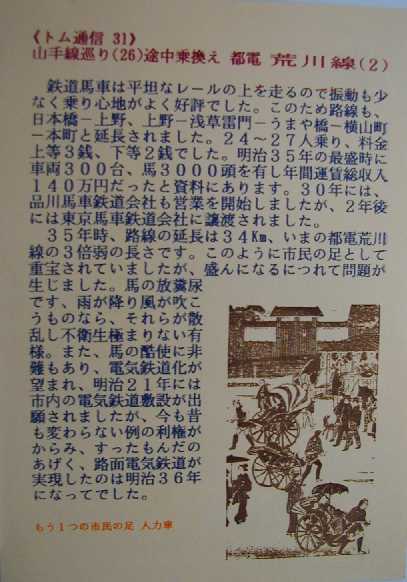 《トム通信 31》
山手線巡り(26)途中乗換え 都電 荒川線(2)
鉄道馬車は平坦なレールの上を走るので振動も少
なく乗り心地がよく好評でした。このため路線も、
日本橋－上野、上野－浅草雷門－うまや橋－横山町
－本町と延長されました。24～27人乗り、料金
上等3銭、下等2銭でした。明治35年の最盛時に
車両300台、馬3000頭を有し年間運賃総収入
140万円だったと資料にあります。30年には、
品川馬車鉄道会社も営業を開始しましたが、2年後
には東京馬車鉄道会社に譲渡されました。
35年時、路線の延長は34Km、いまの都電荒川
線の3倍弱の長さです。このように市民の足として
重宝されていましたが、盛んになるにつれて問題が
生じました。馬の放糞尿
です、雨が降り風が吹こ
うものなら、それらが散
乱し不衛生極まりない有
様。また、馬の酷使に非
難もあり、電気鉄道化が
望まれ、明治21年には
市内の電気鉄道敷設が出
願されましたが、今も昔
も変わらない例の利権が
からみ、すったもんだの
あげく、路面電気鉄道が
実現したのは明治36年
になってでした。
もう1つの市民の足 人力車